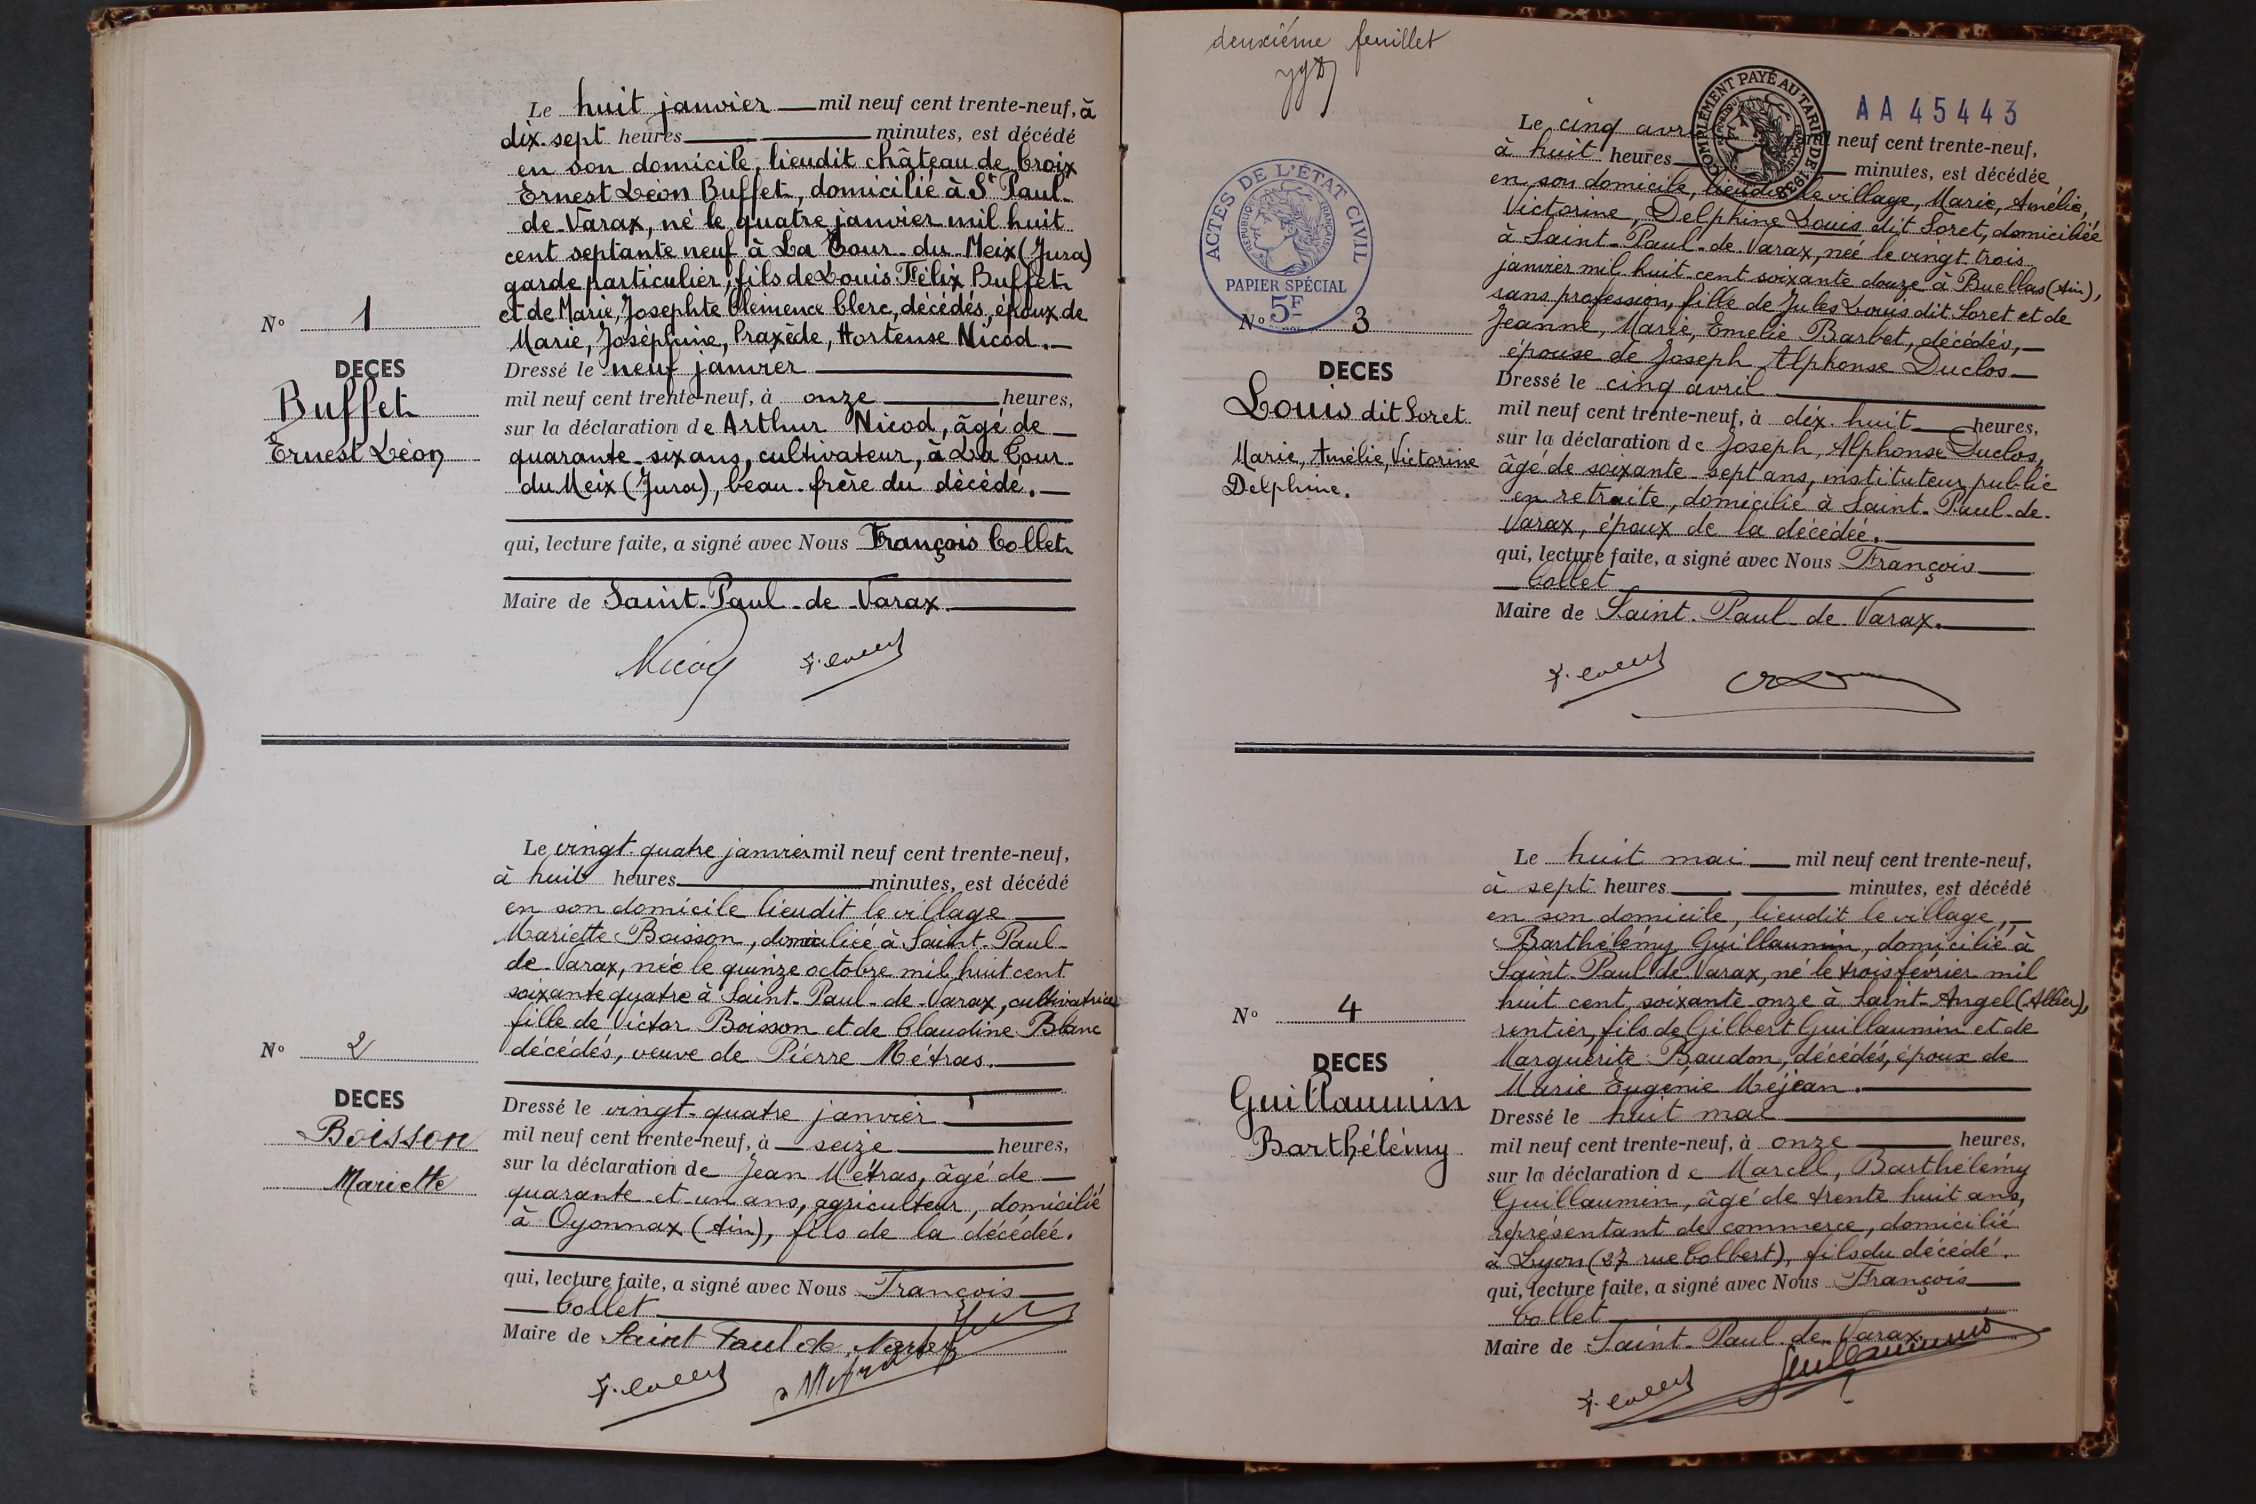 Le huit janvier mil neuf cent trente-neuf, à
dix-sept heures minutes, est décédé
en son domicile, lieudit château de Croix
Ernest Léon Buffet, domicilié à St Paul-
de-Varax, né le quatre janvier mil huit
cent septante neuf à La Tour-du-Meix (Jura)
garde particulier, fils de Louis Félix Buffet
et de Marie, Josephte Clémence Clerc, décédés, époux de
Marie, Joséphine, Praxède, Hortense Nicod.
Dressé le neuf janvier
mil neuf cent trente-neuf, à onze heures,
sur la déclaration de Arthur Nicod, âgé de
quarante-six ans, cultivateur, à La Tour-
du Meix (Jura), beau-frère du décédé.
qui, lecture faite, a signé avec Nous François Collet
Maire de Saint-Paul-de-Varax
Nicod F. Collet
N° 1
DECES
Buffet
Ernest Léon
Le vingt-quatre janvier mil neuf cent trente-neuf,
à huit heures minutes, est décédé
en son domicile lieudit le village
Mariette Boisson, domiciliée à Saint-Paul-
de-Varax, née le quinze octobre mil huit cent
soixante quatre à Saint-Paul-de-Varax, cultivatrice
fille de Victor Boisson et de Claudine Blanc
décédés, veuve de Pierre Métras.
Dressé le vingt-quatre janvier
mil neuf cent trente-neuf, à seize heures,
sur la déclaration de Jean Métras, âgé de
quarante-et-un ans, agriculteur, domicilié
à Oyonnax (Ain), fils de la décédée.
qui, lecture faite, a signé avec Nous François
Collet
Maire de Saint Paul de Varax
F. Collet
N° 2
DECES
Boisson
Mariette
deuxième feuillet
COMPLÉMENT PAYÉ AU TARIF DE 1938
AA 45443
ACTES DE L'ÉTAT CIVIL
RÉPUBLIQUE FRANÇAISE
PAPIER SPÉCIAL
5F
Le cinq avril mil neuf cent trente-neuf,
à huit heures minutes, est décédée
en son domicile, lieudit le village, Marie, Amélie,
Victorine, Delphine Louis dit Loret, domiciliée
à Saint-Paul-de Varax, née le vingt trois
janvier mil huit cent soixante douze à Buellas (Ain),
sans profession, fille de Jules Louis dit Loret et de
Jeanne, Marie, Emelie Barbet, décédés,
épouse de Joseph Alphonse Duclos
Dressé le cinq avril
mil neuf cent trente-neuf, à dix huit heures,
sur la déclaration de Joseph, Alphonse Duclos,
âgé de soixante-sept ans, instituteur public
en retraite, domicilié à Saint-Paul-de-
Varax, époux de la décédée.
qui, lecture faite, a signé avec Nous François
Collet
Maire de Saint-Paul-de Varax.
F. Collet
N° 3
DECES
Louis dit Loret
Marie, Amélie, Victorine
Delphine.
Le huit mai mil neuf cent trente-neuf,
à sept heures minutes, est décédé
en son domicile, lieudit le village,
Barthélémy Guillaumin, domicilié à
Saint-Paul de Varax, né le trois février mil
huit cent soixante onze à Saint-Angel (Allier),
rentier, fils de Gilbert Guillaumin et de
Marguerite Baudon, décédés, époux de
Marie Eugenie Mejean.
Dressé le huit mai
mil neuf cent trente-neuf, à onze heures,
sur la déclaration de Marcel, Barthélémy
Guillaumin, âgé de trente huit ans,
représentant de commerce, domicilié
à Lyon (27 rue Colbert), fils du décédé.
qui, lecture faite, a signé avec Nous François
Collet
Maire de Saint-Paul-de-Varax
F. Collet Guillaumin
N° 4
DECES
Guillaumin
Barthélémy